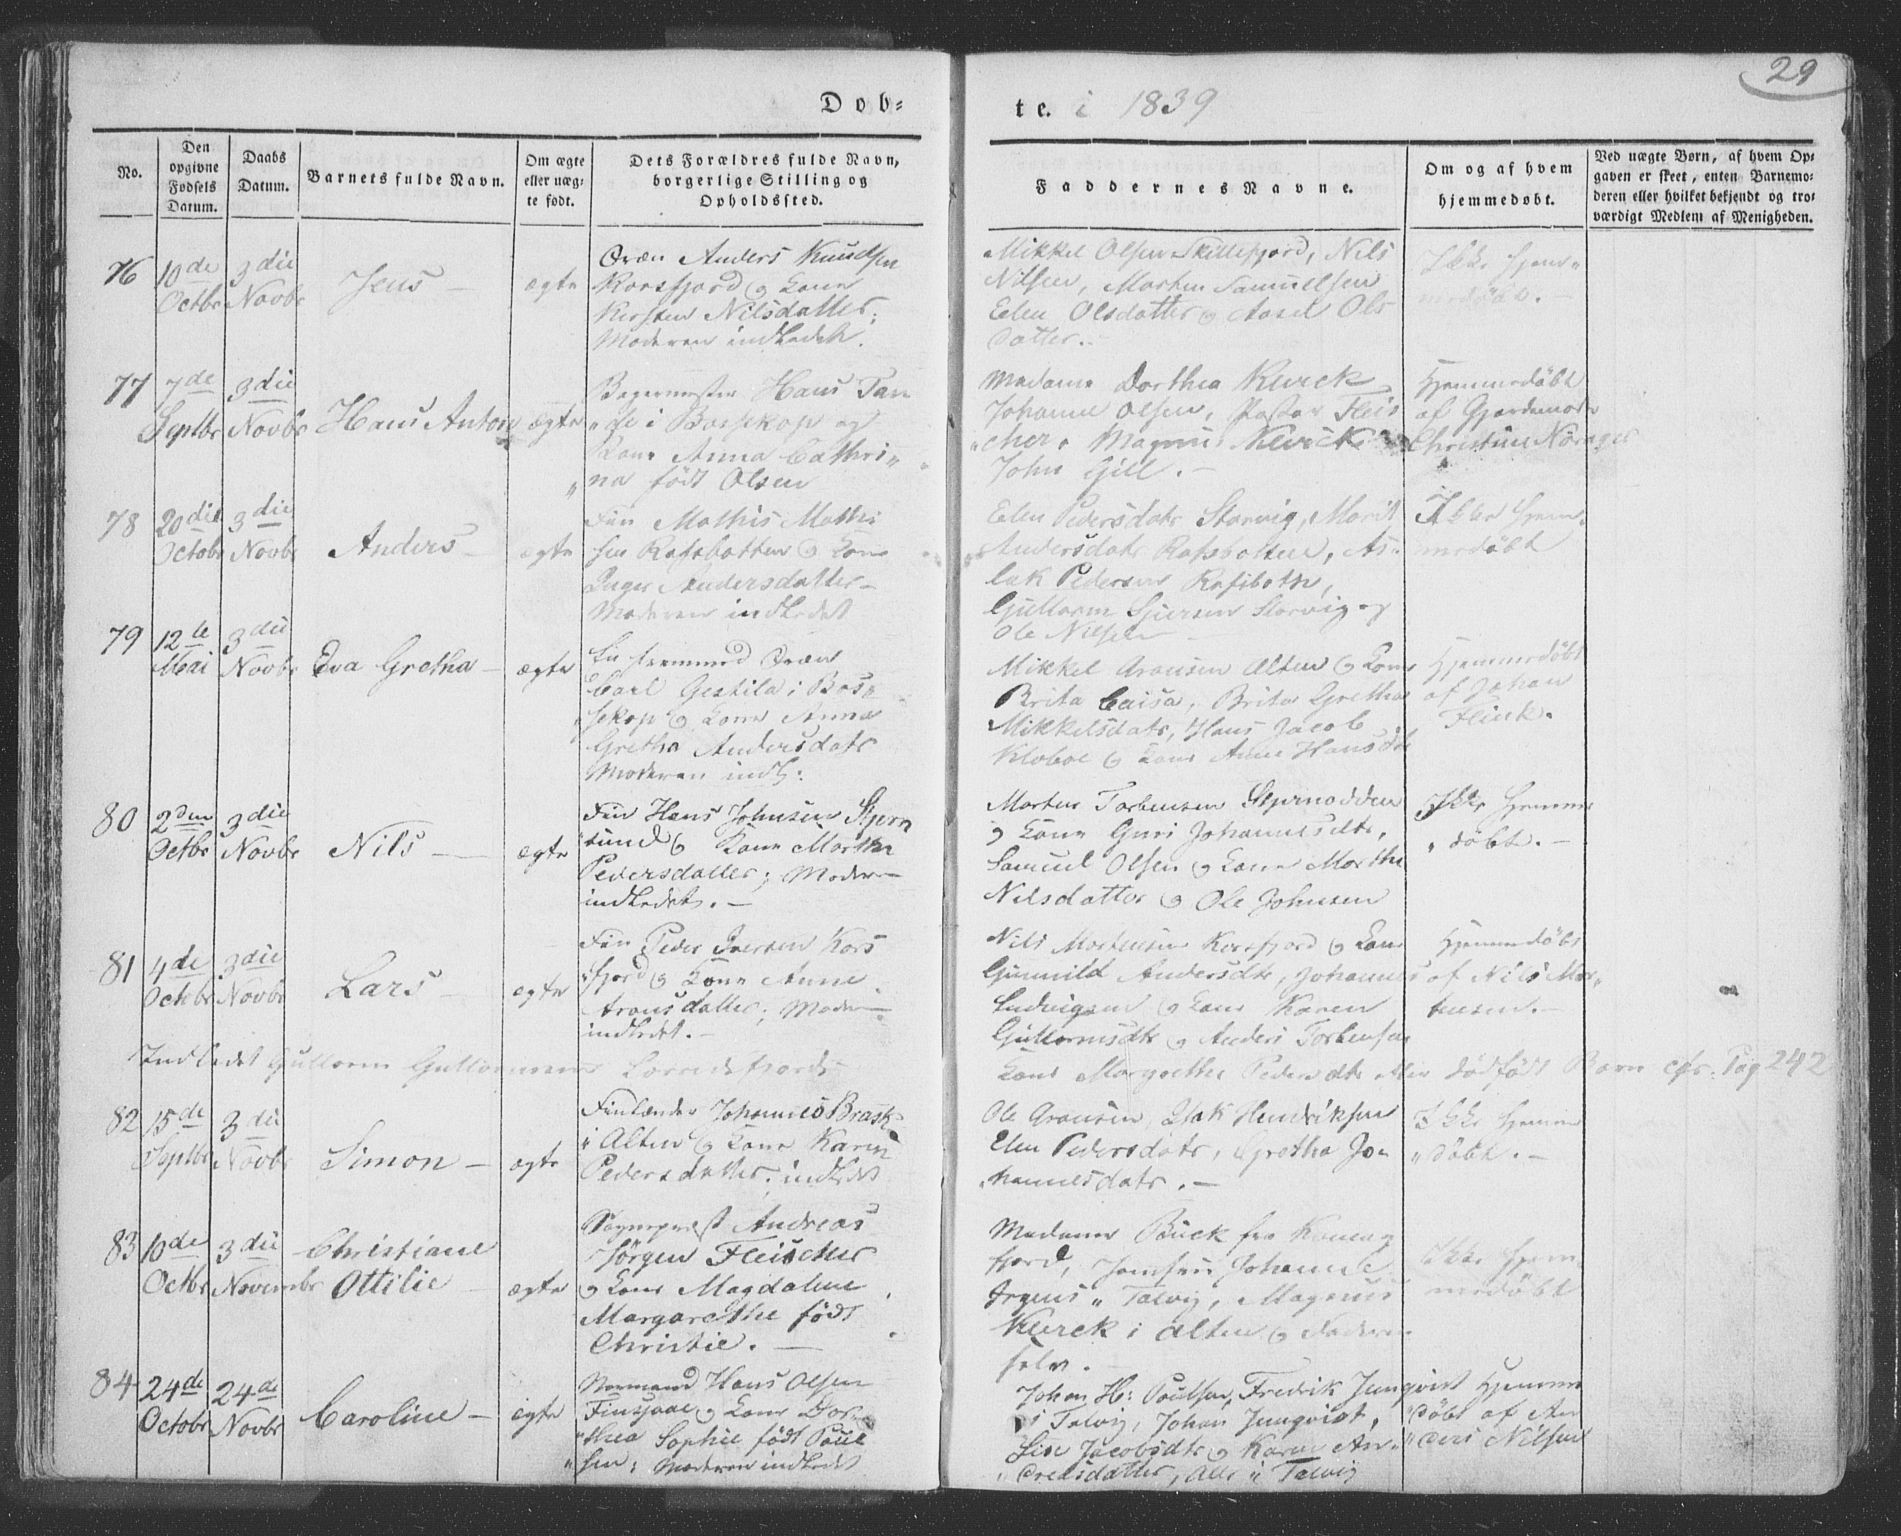 29
Døb=
te. i 1839
No.
Den opgivne Fødsels Datum.
Daabs Datum.
Barnets fulde Navn.
Om ægte eller uæg= te født.
Dets Forældres fulde Navn, borgerlige Stilling og Opholdssted.
Faddernes Navne.
Om og af hvem hjemmedøbt.
Ved uægte Børn, af hvem Op= gaven er skeet, enten Barnemo= deren eller hvilket bekjendt og tro= værdigt Medlem af Menigheden.
76
10de Octbr
3die Novbr
Jens
ægte
Qvæn Anders Knudsen
Korsfjord og Kone
Kirsten Nilsdatter;
Moderen indledet.
Mikkel Olsen Skillefjord, Nils
Nilsen, Morten Samuelsen
Elen Olsdatter og Aasel Ols
datter.
Ikke hjem„
medøbt.
77
7de Septbr
3die Novbr
Hans Anton
ægte
Bagermester Hans Tan
„ i Bossekop og
Kone Anna Cathri„
„na født Olsen
Madame Dorthea Klerck
Johanne Olsen, Pastor Fleis
„cher, Magnus Klerck
John Gill.
Hjemmedøbt
af Gjordemoder
Christine Norager
78
20die Octobr
3die Novbr
Anders
ægte
Fin Mathis Mathi
sen Rafsbotten og Kone
Inger Andersdatter
Moderen indledet
Elen Pedersdatr Storvig, Marit
Andersdatr Rafsbotten, As„
lak Pedersen Rafsbotn,
Guttorm Siversen Storvig og
Ole Nilsen
Ikke hjem„
medøbt
79
12te Mai
3die Novbr
Eva Gretha
ægte
En fremmed Qvæn
Carl Gestila i Bos„
„sekop og Kone Anna
Gretha Andersdatr
Moderen indl:
Mikkel Aronsen Alten og Kone
Brita Caisa, Brita Gretha
Mikkelsdatr, Hans Jacob
Kloboe og Kone Anne Hansdtr
Hjemmedøbt
af Johan
Flink.
80
2den Octbr
3die Novbr
Nils
ægte
Fin Hans Johnsen Stjern
sund og Kone Marthe
Pedersdatter; Moderen
indledet.
Morten Torbensen Stjernodden
og Kone Guri Johannesdtr,
Samuel Olsen og Kone Marthe
Nilsdatter og Ole Johnsen
Ikke hjemme
„døbt.
81
4de Octobr
3die Novbr
Lars
ægte
Fin Peder Iversen Kors
„fjord og Kone Anne
Aronsdatter; Moderen
indledet.
Nils Mortensen Korsfjord og Kone
Gunnild Andersdtr, Johannes
Ludvigsen og Kone Karen
Guttormsdtr og Anders Torbensen
Hjemmedøbt
af Nils Mor„
tensen.
Indledet Guttorm Guttormsens
Kone Margrethe Pedersdtr efter dødfødt Barn cfr. Pag 242
82
15de Septbr
3die Novbr
Simon
ægte
Finlænder Johannes Brask
i Alten og Kone Karen
Pedersdatter; indledet
Ole Aronsen, Isak Hendriksen
Elen Pedersdatr, Gretha Jo„
hannesdatr.
Ikke hjemme
„døbt.
83
10de Octbr
3die Novembr
Christiane
Ottilie
ægte
Sognepræst Andreas
Jørgen Fleischer
og Kone Magdalene
Margarethe født
Christie.
Madame Buck fra Kaaen
fjord, Jomfru Johanne
Irgens, Talvig, Magnus
Klerck i Alten og Faderen
selv.
Ikke hjem
medøbt
84
24de Octobr
24de Novbr
Caroline
ægte
Normand Hans Olsen
og Kone Dor„
„thea Sophie født Poul
„sen; Moderen indledet
Johan H: Poulsen, Fredrik Junqvist
i Talvig, Johan Junqvist,
Lise Jacobsdtr og Karen An„
„dreasdatter, Alle i Talvig
Hjemme
„døbt af An
„ders Nilsen